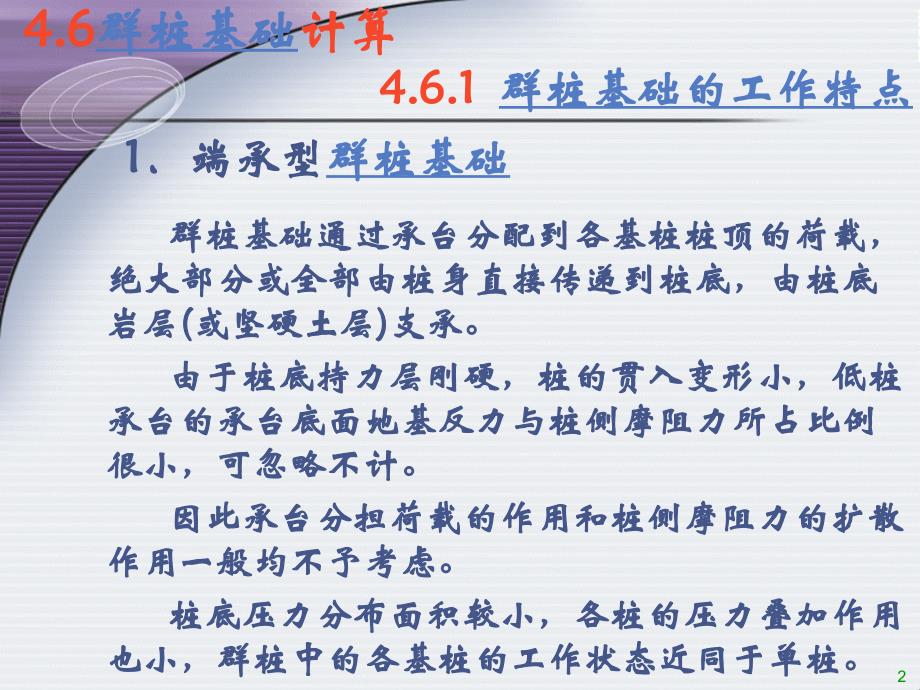 4.6群桩基础计算
4.6.1 群桩基础的工作特点
1. 端承型群桩基础
群桩基础通过承台分配到各基桩桩顶的荷载，
绝大部分或全部由桩身直接传递到桩底，由桩底
岩层(或坚硬土层)支承。
由于桩底持力层刚硬，桩的贯入变形小，低桩
承台的承台底面地基反力与桩侧摩阻力所占比例
很小，可忽略不计。
因此承台分担荷载的作用和桩侧摩阻力的扩散
作用一般均不予考虑。
桩底压力分布面积较小，各桩的压力叠加作用
也小，群桩中的各基桩的工作状态近同于单桩。
2